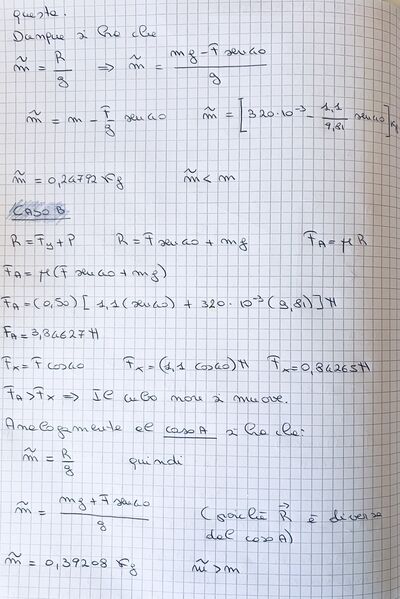 questa.
Dunque si ha che
m̃ = R/g ⇒ m̃ = (mg - F sen40)/g
m̃ = m - F/g sen40 m̃ = [320·10⁻³ - 1,1/9,81 sen40] Kg
m̃ = 0,24792 Kg m̃ < m
CASO B
R = Fy + P R = F sen40 + mg FA = μ R
FA = μ(F sen40 + mg)
FA = (0,50)[1,1(sen40) + 320·10⁻³(9,81)] N
FA = 3,84627 N
Fx = F cos40 Fx = (1,1 cos40) N Fx = 0,84265 N
FA > Fx ⇒ Il cubo non si muove.
Analogamente al caso A si ha che:
m̃ = R/g quindi
m̃ = (mg + F sen40)/g (poiché R⃗ è diversa
dal caso A)
m̃ = 0,39208 Kg m̃ > m